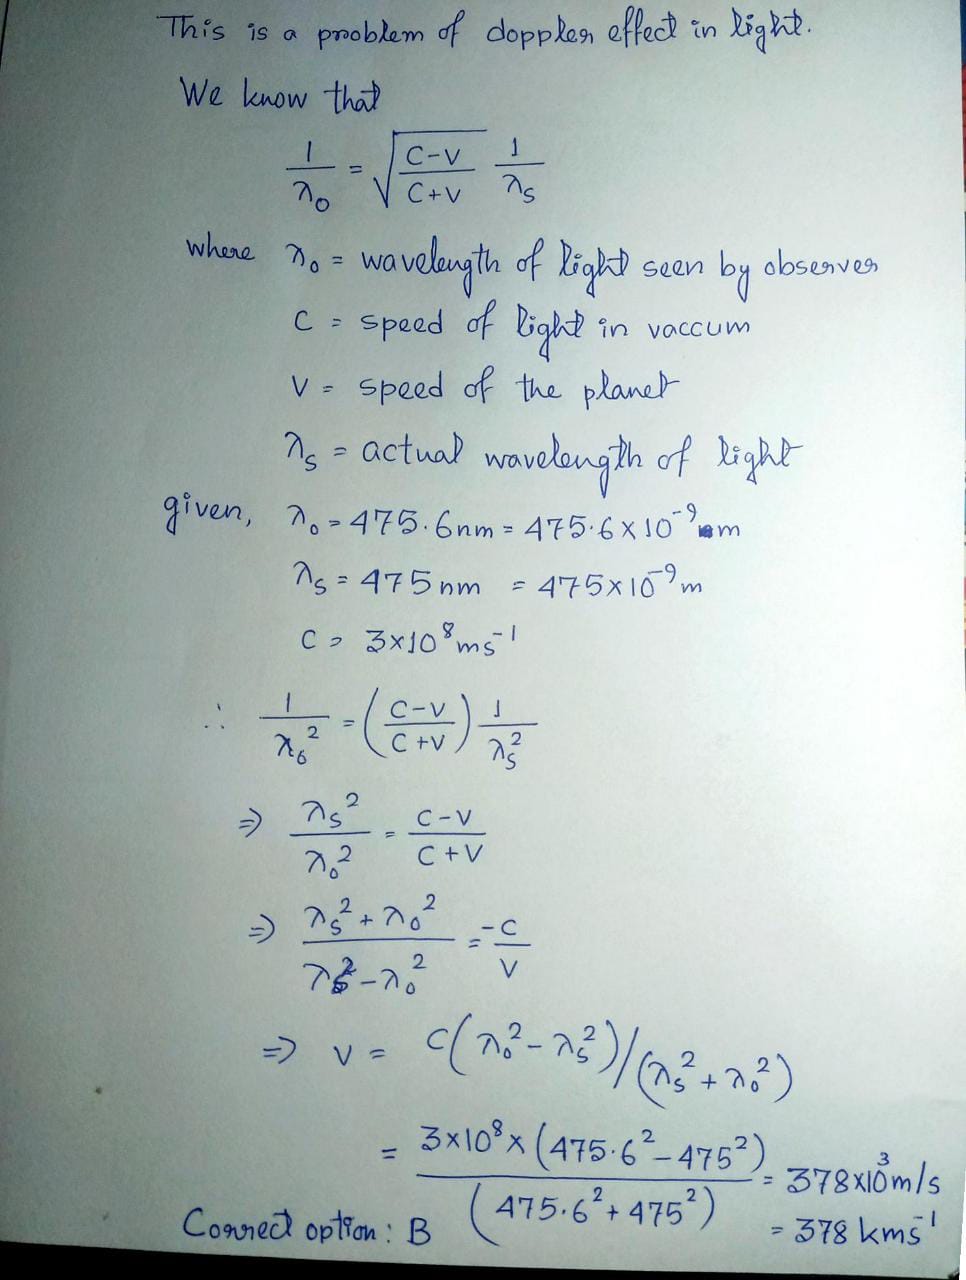 This is a problem of doppler effect in light.
We know that
1/λ₀ = √((C-V)/(C+V)) 1/λs
where λ₀ = wavelength of light seen by observer
C = speed of light in vaccum
V = speed of the planet
λs = actual wavelength of light
given, λ₀ = 475.6nm = 475.6 x 10⁻⁹ m
λs = 475 nm = 475x10⁻⁹ m
C = 3x10⁸ ms⁻¹
∴ 1/λ₀² = ((C-V)/(C+V)) 1/λs²
⇒ λs²/λ₀² = (C-V)/(C+V)
⇒ (λs² + λ₀²)/(λs² - λ₀²) = -C/V
⇒ V = C(λ₀² - λs²)/(λs² + λ₀²)
= 3x10⁸ x (475.6² - 475²)/(475.6² + 475²) = 378x10³ m/s
Correct option : B = 378 kms⁻¹